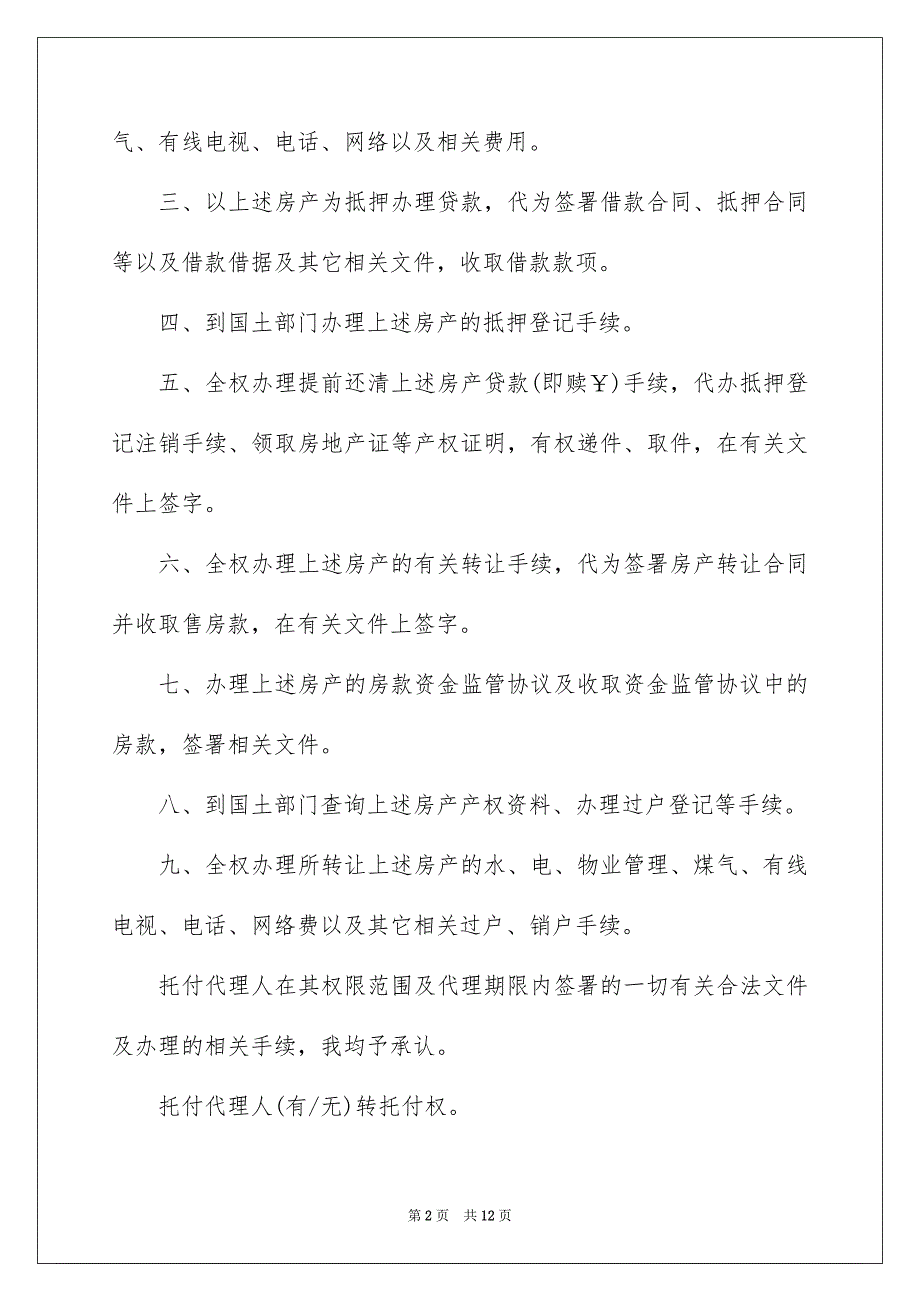 气、有线电视、电话、网络以及相关费用。
三、以上述房产为抵押办理贷款，代为签署借款合同、抵押合同
等以及借款借据及其它相关文件，收取借款款项。
四、到国土部门办理上述房产的抵押登记手续。
五、全权办理提前还清上述房产贷款(即赎￥)手续，代办抵押登
记注销手续、领取房地产证等产权证明，有权递件、取件，在有关文
件上签字。
六、全权办理上述房产的有关转让手续，代为签署房产转让合同
并收取售房款，在有关文件上签字。
七、办理上述房产的房款资金监管协议及收取资金监管协议中的
房款，签署相关文件。
八、到国土部门查询上述房产产权资料、办理过户登记等手续。
九、全权办理所转让上述房产的水、电、物业管理、煤气、有线
电视、电话、网络费以及其它相关过户、销户手续。
托付代理人在其权限范围及代理期限内签署的一切有关合法文件
及办理的相关手续，我均予承认。
托付代理人(有/无)转托付权。
第 2 页 共 12 页